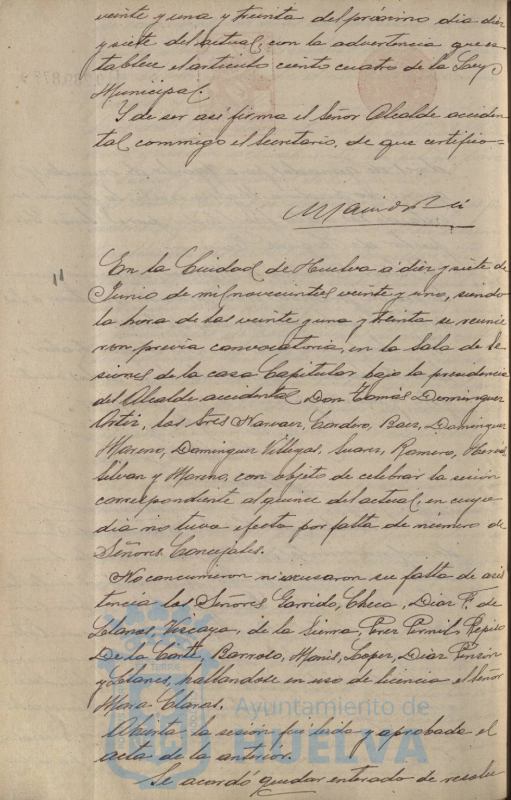 veinte y una y treinta del próximo dia diez
y siete del actual, con la advertencia que es-
tablece el articulo ciento cuatro de la Ley
Municipal.
Y de ser así firma el Señor Alcalde acciden-
tal conmmigo el Secretario, de que certifico=
11
En la Ciudad de Huelva á diez y siete de
Junio de mil novecientos veinte y uno, siendo
la hora de las veinte y una y treinta se reunie
ron previa convocatoria, en la Sala de Se
siones de la casa Capitular bajo la presidencia
del Alcalde accidental, Don Tomás Dominguez
Ortiz, los Sres Narvaez, Cordero, Baez, Dominguez
Moreno, Dominguez Villegas, Suarez, Ramero,
Silvan y Moreno, con objeto de celebrar la sesión
correspondiente al quince del actual, en cuyo
dia no tuvo efecto por falta de número de
Señores Concejales.
No concurrieron ni excusaron su falta de asis
tencia los Señores Garrido, Checa, Diaz F. de
Llanes, Vizcaya, de la Sierra, Perez
De la Corte, Barroso, Monis, Lopez, Diaz Pinzón
y Llanes, hallandose en uso de licencia el Señor
Mora Claros.
Abierta la sesión fué leida y aprobada el
acta de la anterior.
Se acordó quedar enterado de resolu
Ayuntamiento de
HUELVA